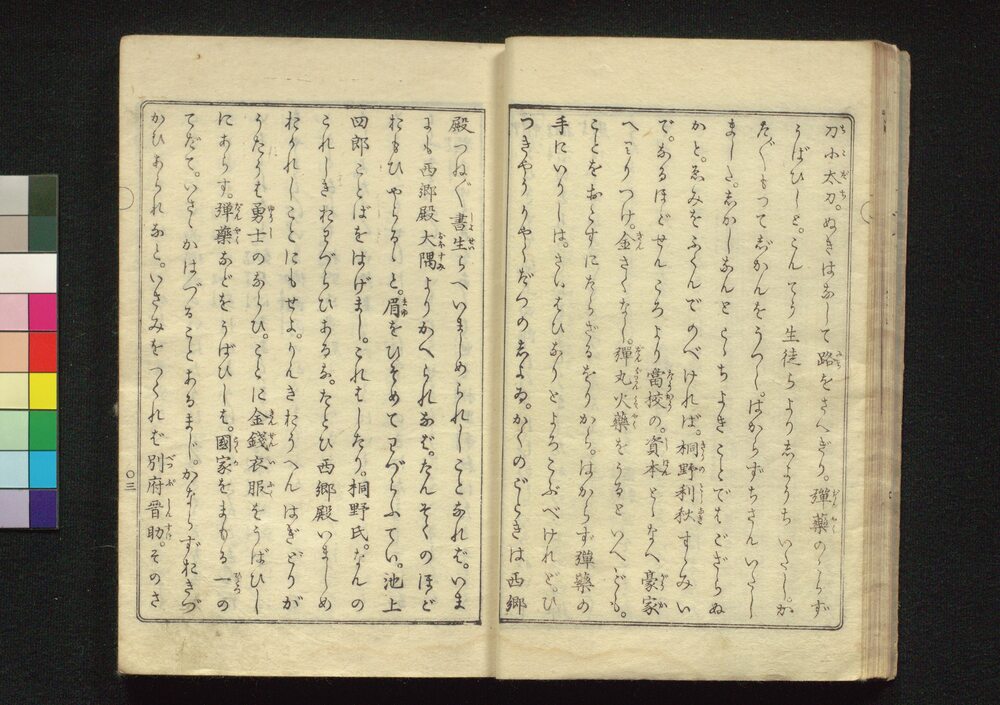 刀小太刀。ぬきはなして路をさへぎり。彈藥のこらず
うばひしと。こんてう生徒らよりしようちいたし。か
た〴〵もつてじかんをうつし。はからずちさんいたし
ました。しかしなんとこゝちよきことでもござらぬ
かと。ゑみをふくんでのべければ。桐野利秋すゝみい
で。なるほどせんころより當校の。資本となへ豪家
へ つけ。金さくなし。彈丸火藥をうるといへども。
ことをおこすにたらざるをりから。はからず彈藥の
手にいりしは。さいはひなりとよろこぶべけれど。ひ
つきやう のしよゐ。かくのごときは西郷
殿つね〴〵書生らへいましめられしことなれば。いま
にも西郷殿大隅よりかへられなば。たんそくのほど
おもひやらるゝと。眉をひそめてわづらふてい。池上
四郎ことばをはげまし。これはしたり。桐野氏。なんの
これしきおこづらひあるな。たとひ西郷殿いましめ
おかれしことにもせよ。りんきおうへんはぎどりが
うたうは勇士のならひ。ことに金錢衣服をうばひし
にあらず。彈藥などをうばひしも。國家をまもる一の
てだて。いさゝかはづることあるまじ。かならずおきづ
かひあられなと。いきみをつくれば別府晋助。そのさ
〇三